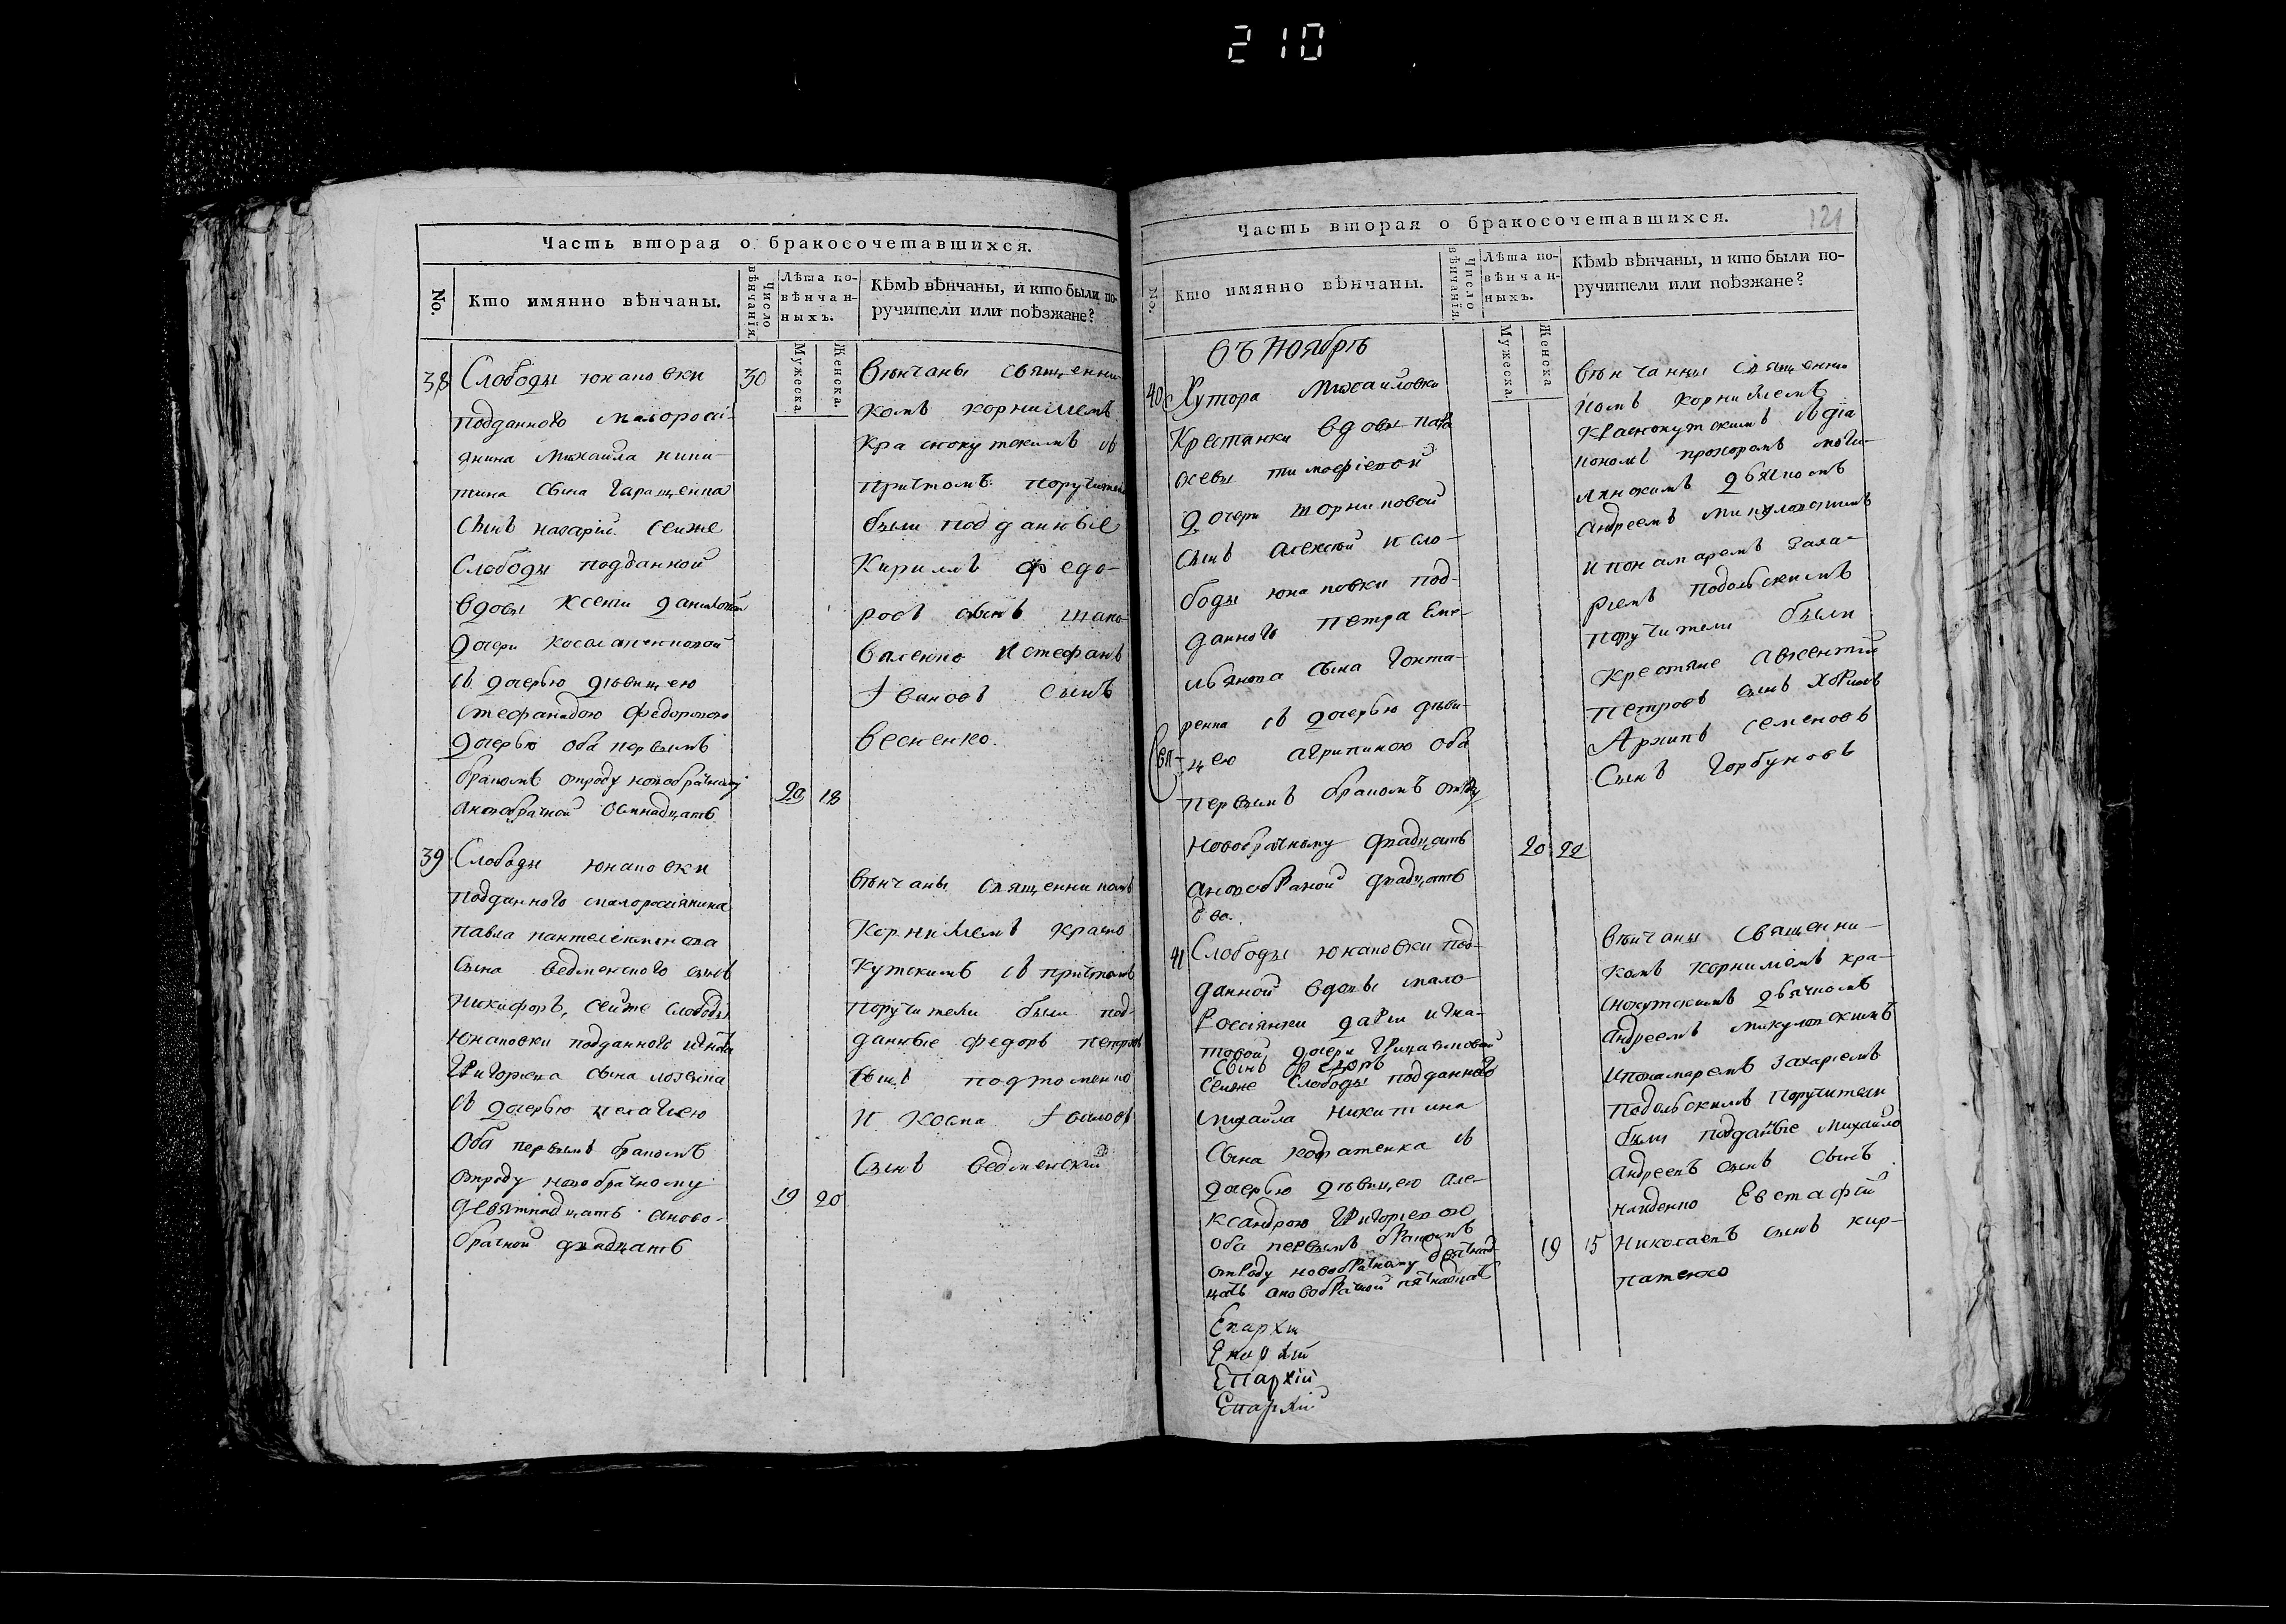 210
Часть вторая о бракосочетавшихся.
No.
Кто имянно вѣнчаны.
Число вѣнчанія.
Лѣта по-
вѣнчан-
ныхъ.
Мужеска.
Женска.
Кѣмъ вѣнчаны, и кто были по-
ручители или поѣзжане?
38 Слободы юнаковки 30
подданного малоросі-
янина Михаила ники-
тина сына Гаращенка
сынъ назарій сеяже
Слободы подданной
вдовы ксеніи
дочери
съ дочерью дѣвицею
стефанидою федоровою
дочерью оба первымъ
бракомъ отроду новобрачному
ановобрачной осмнадцать 20 18
Вѣнчаны священни-
комъ корниліемъ
краснокутскимъ съ
притчомъ поручители
были подданные
Кирилъ федо-
ровъ сынъ шапо-
валенко истефанъ
Івановъ сынъ
весненко.
39 Слободы юнаковки
подданного малоросіянина
павла пантелеимонова
сына ведменского сынъ
никифоръ, сейже слободы
юнаковки подданного
Григорiева сына
съ дочерью пелагіею
оба первымъ бракомъ
отроду новобрачному
девятнадцать аново- 19 20
брачной двадцать
вѣнчаны священникомъ
Корниліемъ красно
кутскимъ съ притчомъ
поручители были под-
данные федоръ петровъ
сынъ
и косма Івановъ
сынъ ведменскій
Часть вторая о бракосочетавшихся. 121
No.
Кто имянно вѣнчаны.
Число вѣнчанія.
Лѣта по-
вѣнчан-
ныхъ.
Мужеска.
Женска
Кѣмъ вѣнчаны, и кто были по-
ручители или поѣзжане?
Въ Ноябрѣ
40 Хутора Михаиловки
Крестянки вдовы пара
скевы тимофіевой
дочери
сынъ алексѣй исло-
боды юнаковки под-
данного петра Еме-
льянова сына Гонта-
ренка съ дочерью дѣви-
цею агрипиною оба
первымъ бракомъ отроду
новобрачному двадцать 20 22
ановобрачной двадцать
два.
вѣнчанны священни
комъ корниліемъ
краснокутскимъ съ діа
кономъ прохоромъ моги-
лянскимъ дьячкомъ
андреемъ
ипонамаремъ заха-
ріемъ подольскимъ
поручители были
крестяне авксентій
петровъ сынъ
Архипъ семеновъ
сынъ горбуновъ
41 Слободы юнаковки под-
данной вдовы мало-
россіянки даріи игна-
товой дочери
сынъ федоръ
сеяже слободы подданного
михаила никитина
сына съ
дочерью дѣвицею але-
ксандрою григоріевою
оба первымъ бракомъ 19 15
отроду новобрачному девятнад-
цать ановобрачной пятнадцать
вѣнчаны священни-
комъ корниліемъ кра-
снокутскимъ дьячкомъ
андреемъ
ипонамаремъ захаріемъ
подольскимъ поручители
были подданные михайло
андреевъ сынъ
Евстафій
николаевъ сынъ кир-
патенко
Епархіи
Епархіи
Епархіи